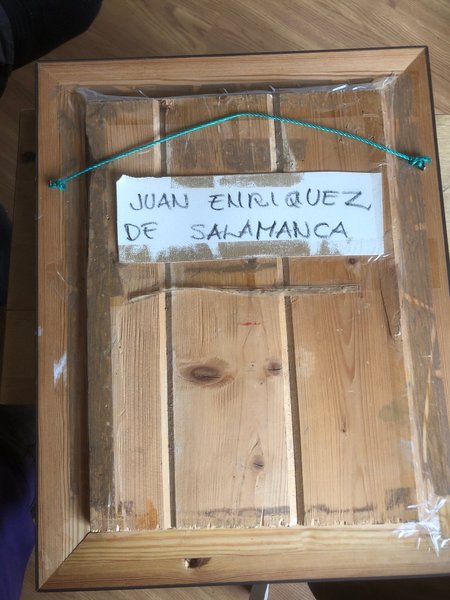 JUAN ENRIQUEZ
DE SALAMANCA